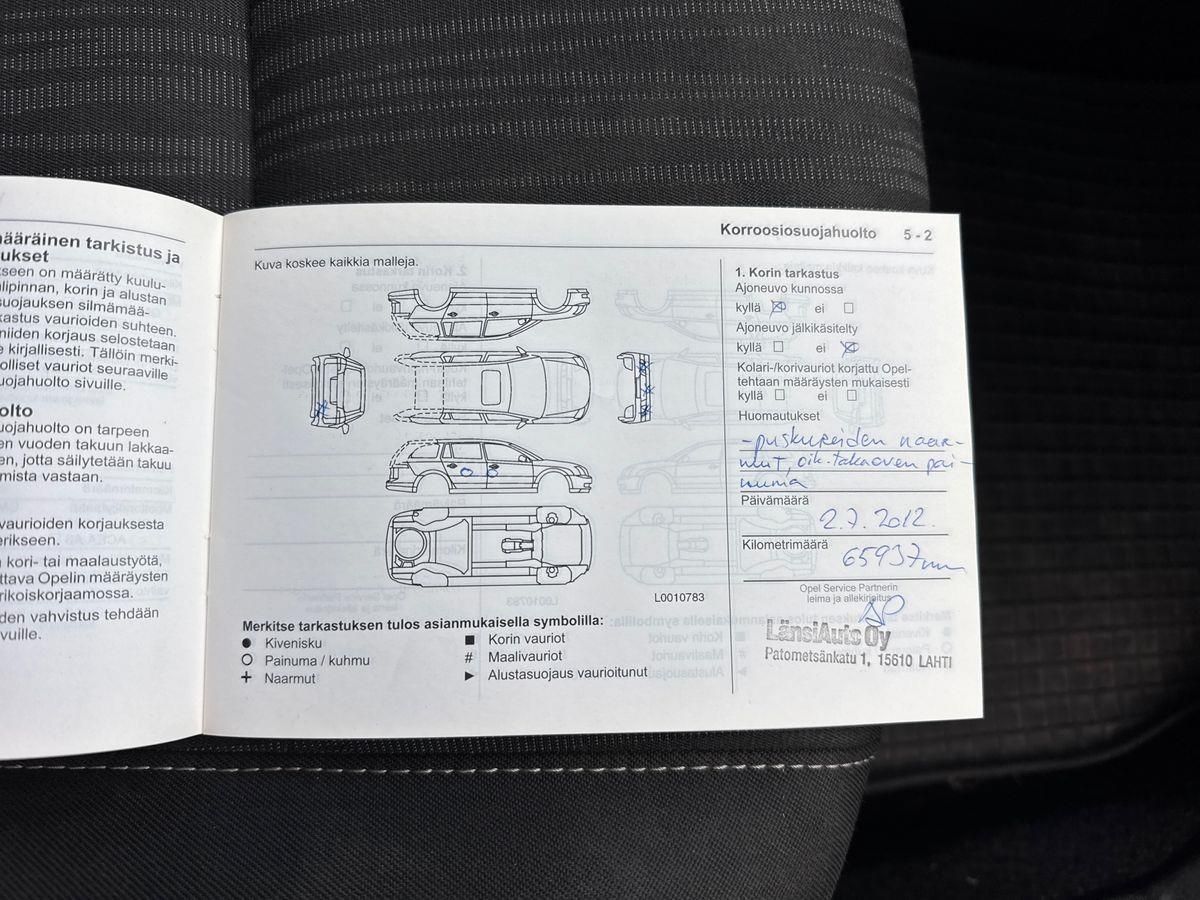 ääräinen tarkistus ja
ukset
seen on määrätty kuulu-
lipinnan, korin ja alustan
suojauksen silmämää-
kastus vaurioiden suhteen.
niiden korjaus selostetaan
kirjallisesti. Tällöin merki-
olliset vauriot seuraaville
uojahuolto sivuille.
olto
uojahuolto on tarpeen
en vuoden takuun lakkaa-
en, jotta säilytetään takuu
mista vastaan.
vaurioiden korjauksesta
erikseen.
kori- tai maalaustyötä,
ttava Opelin määräysten
rikoiskorjaamossa.
den vahvistus tehdään
vuille.
Korroosiosuojahuolto 5 - 2
Kuva koskee kaikkia malleja.
L0010783
Merkitse tarkastuksen tulos asianmukaisella symbolilla:
● Kivenisku
○ Painuma / kuhmu
+ Naarmut
■ Korin vauriot
# Maalivauriot
► Alustasuojaus vaurioitunut
1. Korin tarkastus
Ajoneuvo kunnossa
kyllä ☒ ei ☐
Ajoneuvo jälkikäsitelty
kyllä ☐ ei ☒
Kolari-/korivauriot korjattu Opel-
tehtaan määräysten mukaisesti
kyllä ☐ ei ☐
Huomautukset
-puskureiden naar-
mut, oik. takaoven pai-
numa
Päivämäärä
2.7.2012.
Kilometrimäärä
65937
Opel Service Partnerin
leima ja allekirjoitus
LänsiAuto Oy
Patometsänkatu 1, 15610 LAHTI